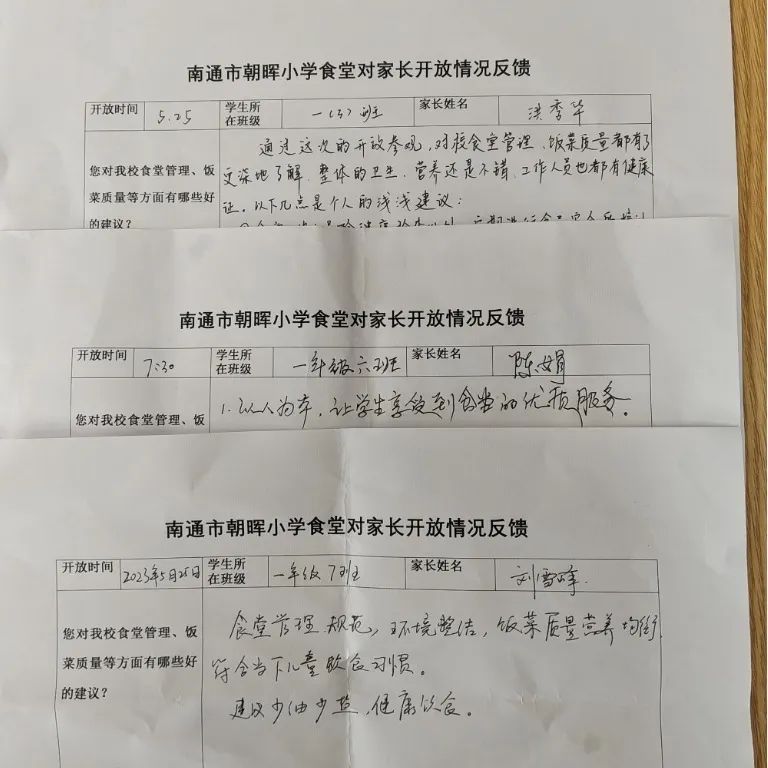 南通市朝晖小学食堂对家长开放情况反馈
开放时间 5.25 学生所在班级 一(3)班 家长姓名 洪季华
您对我校食堂管理、饭菜质量等方面有哪些好的建议？
通过这次的开放参观，对校食堂管理、饭菜质量都有了
更深地了解，整体的卫生、营养还是不错，工作人员也都有健康
证。以下几点是个人的浅浅建议：
南通市朝晖小学食堂对家长开放情况反馈
开放时间 7:30 学生所在班级 一年级六班 家长姓名 陈娟
您对我校食堂管理、饭
1.以人为本，让学生享受到食堂的优质服务。
南通市朝晖小学食堂对家长开放情况反馈
开放时间 2023年5月25日 学生所在班级 一年级7班 家长姓名 刘雪峰
您对我校食堂管理、饭
菜质量等方面有哪些好
的建议？
食堂管理规范，环境整洁，饭菜质量营养均衡，
符合当下儿童饮食习惯。
建议少油少盐，健康饮食。